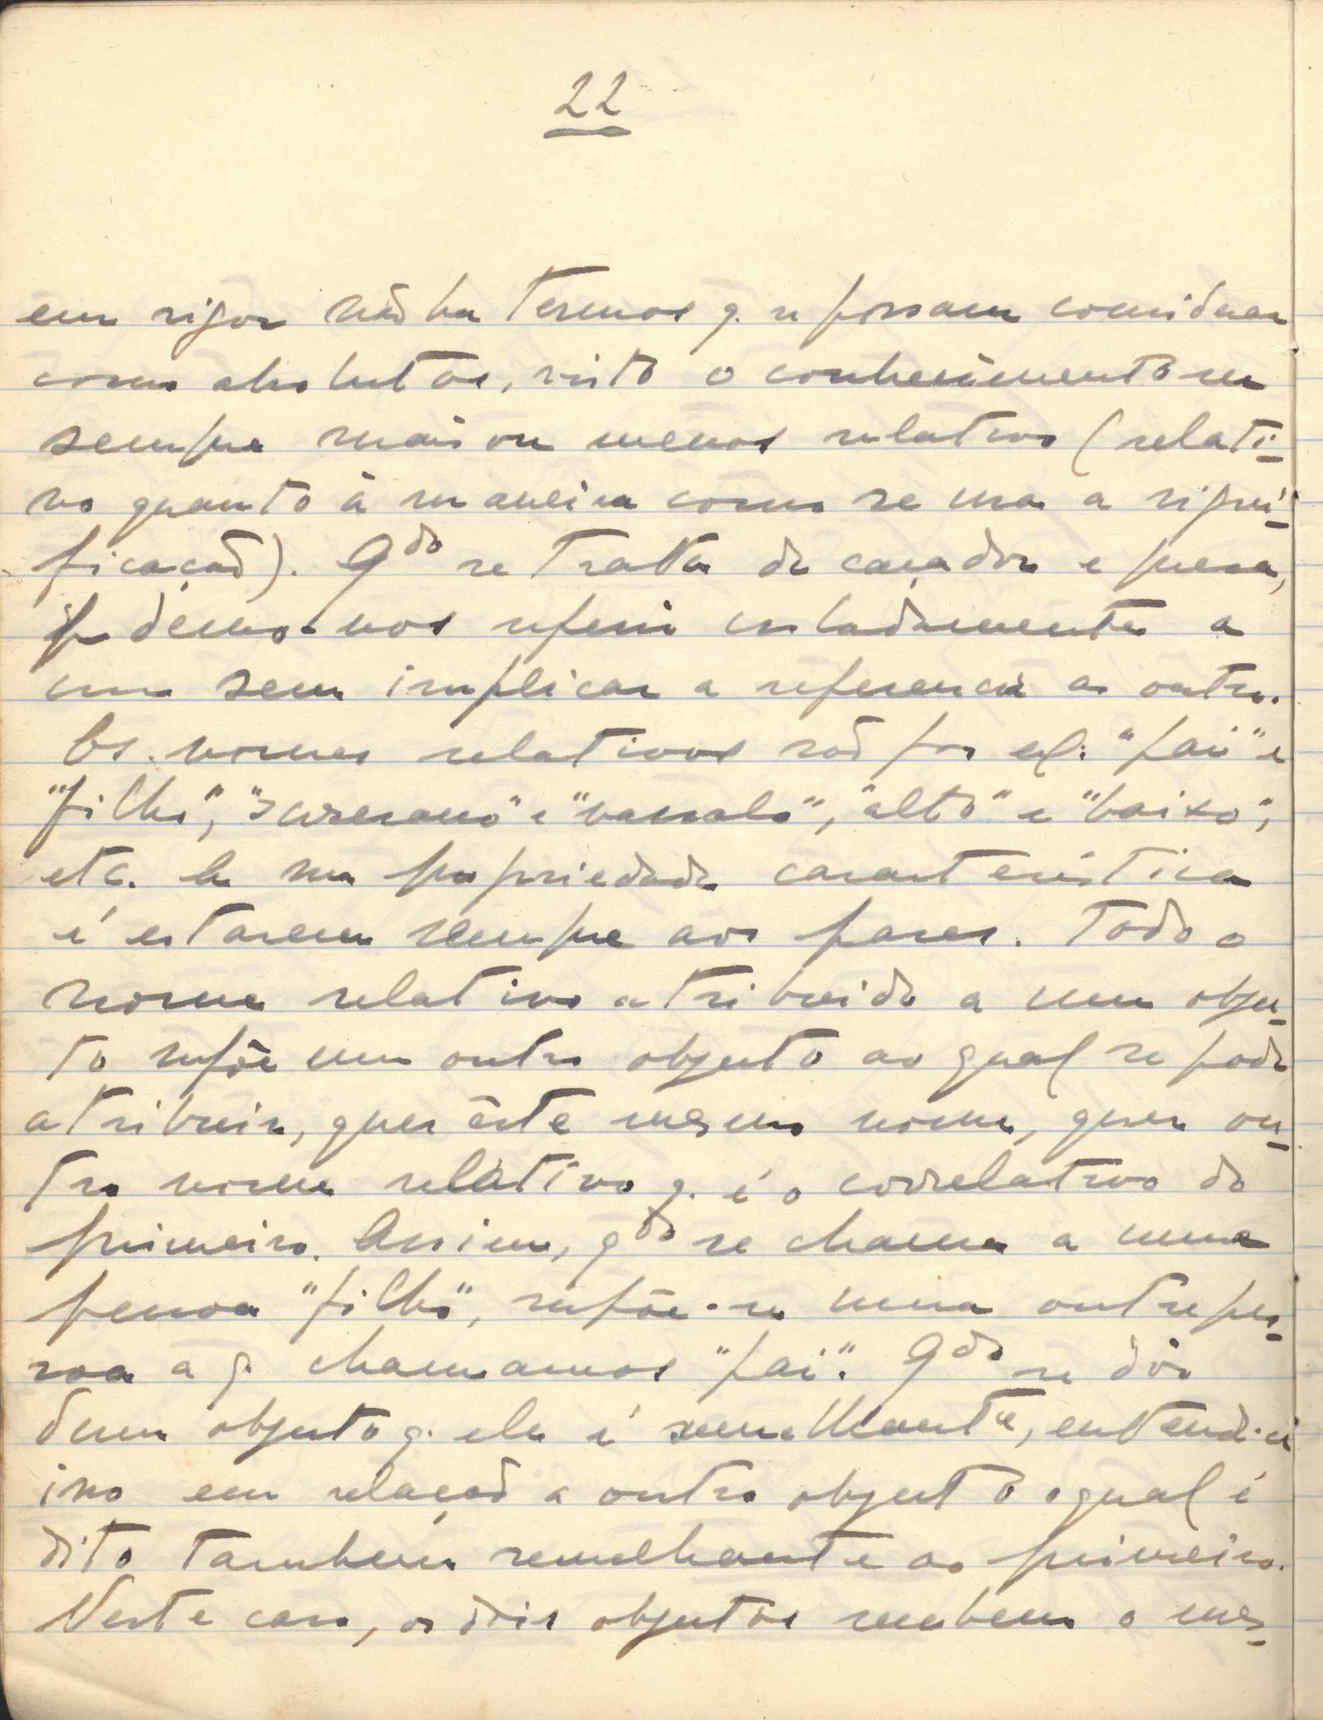 22
em rigor não ha termos q. se possam considerar
como absolutos, visto o conhecimento ser
sempre mais ou menos relativo (relati-
vo quanto à maneira como se usa a signi-
ficação). Qdo se trata de caçador e presa,
podemo-nos referir isoladamente a
um sem implicar a referencia ao outro.
Os nomes relativos são por ex. "pai" e
"filho", "suserano" e "vassalo", "alto" e "baixo",
etc. A sua propriedade caracterìstica
é estarem sempre aos pares. Todo o
nome relativo atribuido a um objec-
to supõe um outro objecto ao qual se pode
atribuir, quer êste mesmo nome, quer ou-
tro nome relativo q. é o correlativo do
primeiro. Assim, qdo se chama a uma
pessoa "filho", supõe-se uma outra pes-
soa a q. chamamos "pai". Qdo se diz
dum objecto q. ele é semelhante, entende-se
isso em relação a outro objecto o qual é
dito também semelhante ao primeiro.
Neste caso, os dois objectos recebem o mes-